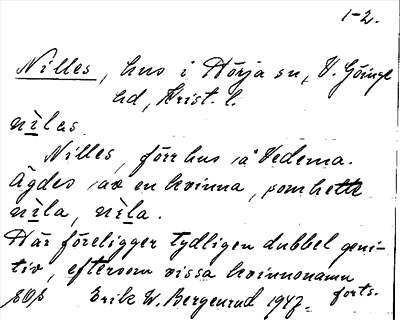 1-2.
Nilles, hus i Hörja sn, V. Göinge
hd, Krist. l.
nìlas.
Nilles, förr hus å Vedema.
Ägdes av en kvinna, som hette
nìla, nìla.
Här föreligger tydligen dubbel geni-
tiv, eftersom vissa kvinnonamn
forts.
Erik W. Bergenrud 1947.